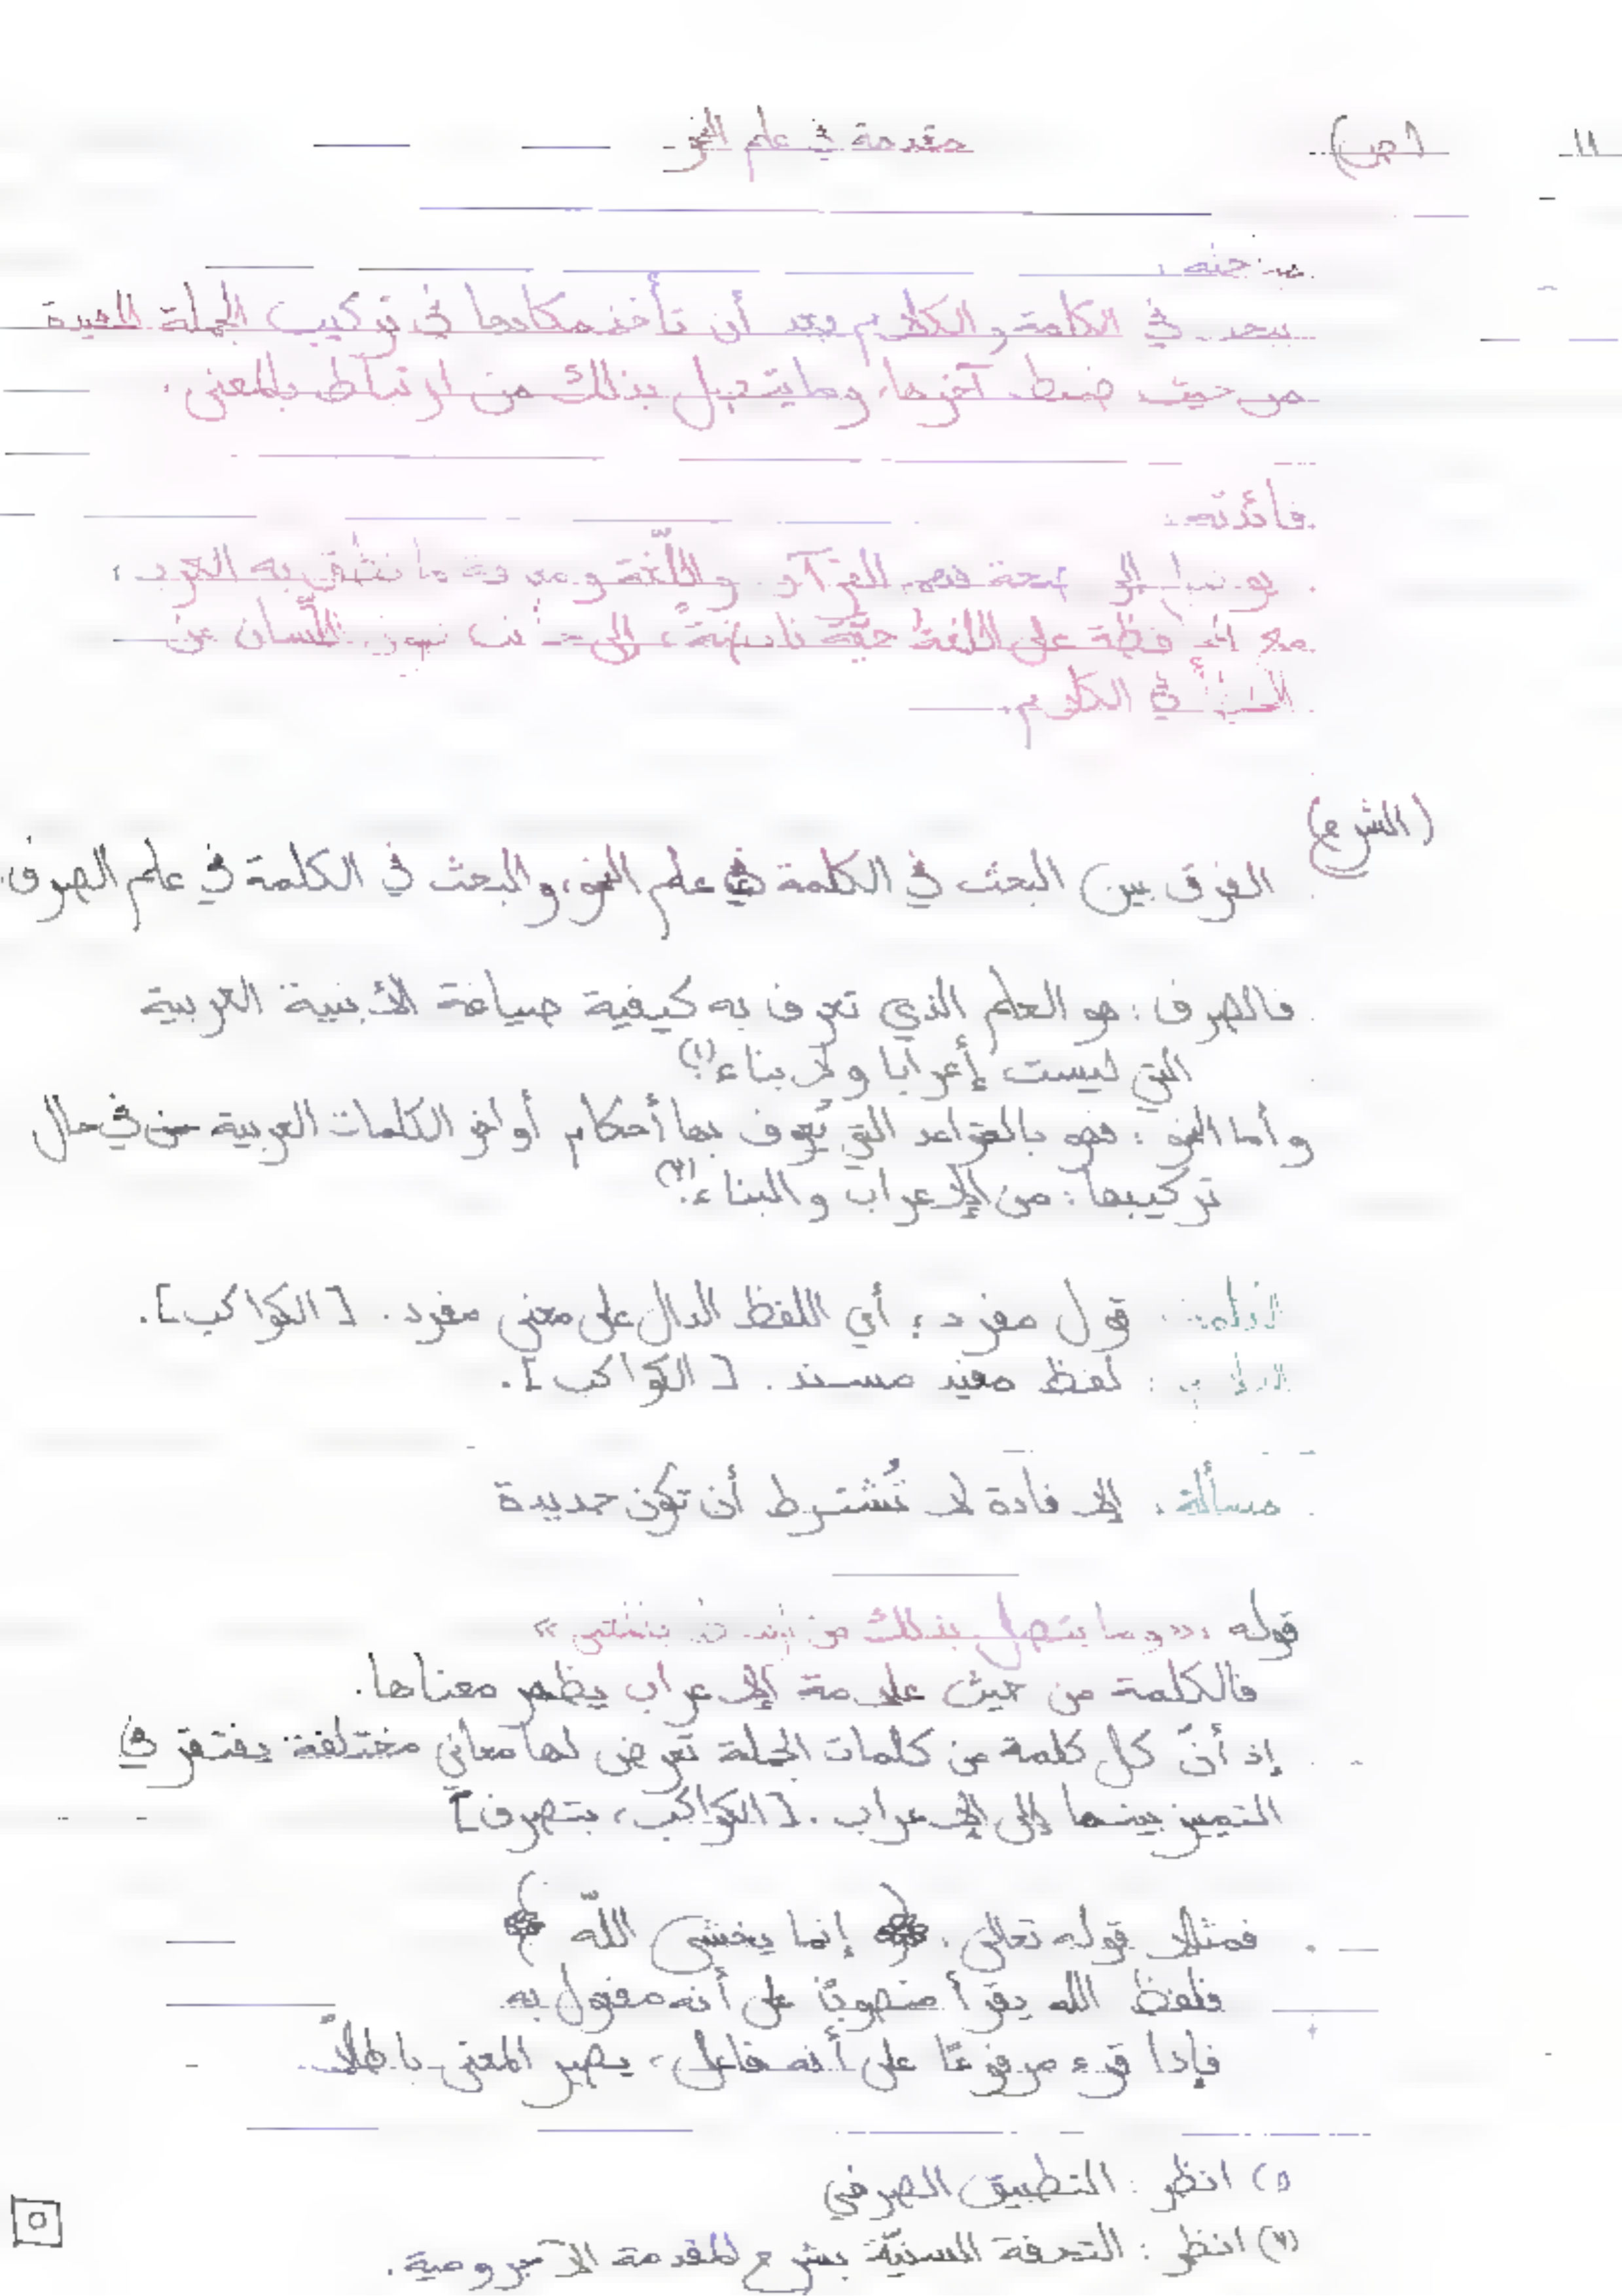 ١١ (ص) مقدمة في علم النحو
يبحث في الكلمة والكلام بعد أن تأخذ مكانها في تركيب الجملة المفيدة
من حيث ضبط آخرها، وما يتصل بذلك من ارتباط بالمعنى.
فائدته:
فهم القرآن واللّغة به العرب،
مع على اللغة حيّة اللّسان عن
في الكلام.
(الشرح)
الفرق بين البحث في الكلمة في علم النحو، والبحث في الكلمة في علم الصرف.
فالصرف: هو العلم الذي تعرف به كيفية صياغة الأبنية العربية
التي ليست إعرابا ولا بناء.(١)
وأما النحو: فهو بالقواعد التي يُعرف بها أحكام أواخر الكلمات العربية في حال
تركيبها: من الإعراب والبناء.(٢)
قول مفرد؛ أي اللفظ الدال على معنى مفرد. [الكواكب].
لفظ مفيد مسند. [الكواكب].
مسألة: الإفادة لا تُشترط أن تكون جديدة
قوله: «وما يتصل بذلك من »
فالكلمة من حيث علامة الإعراب يظهر معناها.
إذ أنّ كل كلمة من كلمات الجملة تعرض لها معاني مختلفة يفتقر في
التمييز بينها إلى الإعراب. [الكواكب، بتصرف]
فمثلا قوله تعالى: ﴿إنما يخشى اللّه﴾
فلفظ الله يقرأ منصوبًا على أنه مفعول به
فإذا قرء مرفوعًا على أنه فاعل، يصير المعنى باطلًا.
(١) انظر: التطبيق الصرفي
(٢) انظر: التحفة السنيّة بشرح المقدمة الآجرومية.